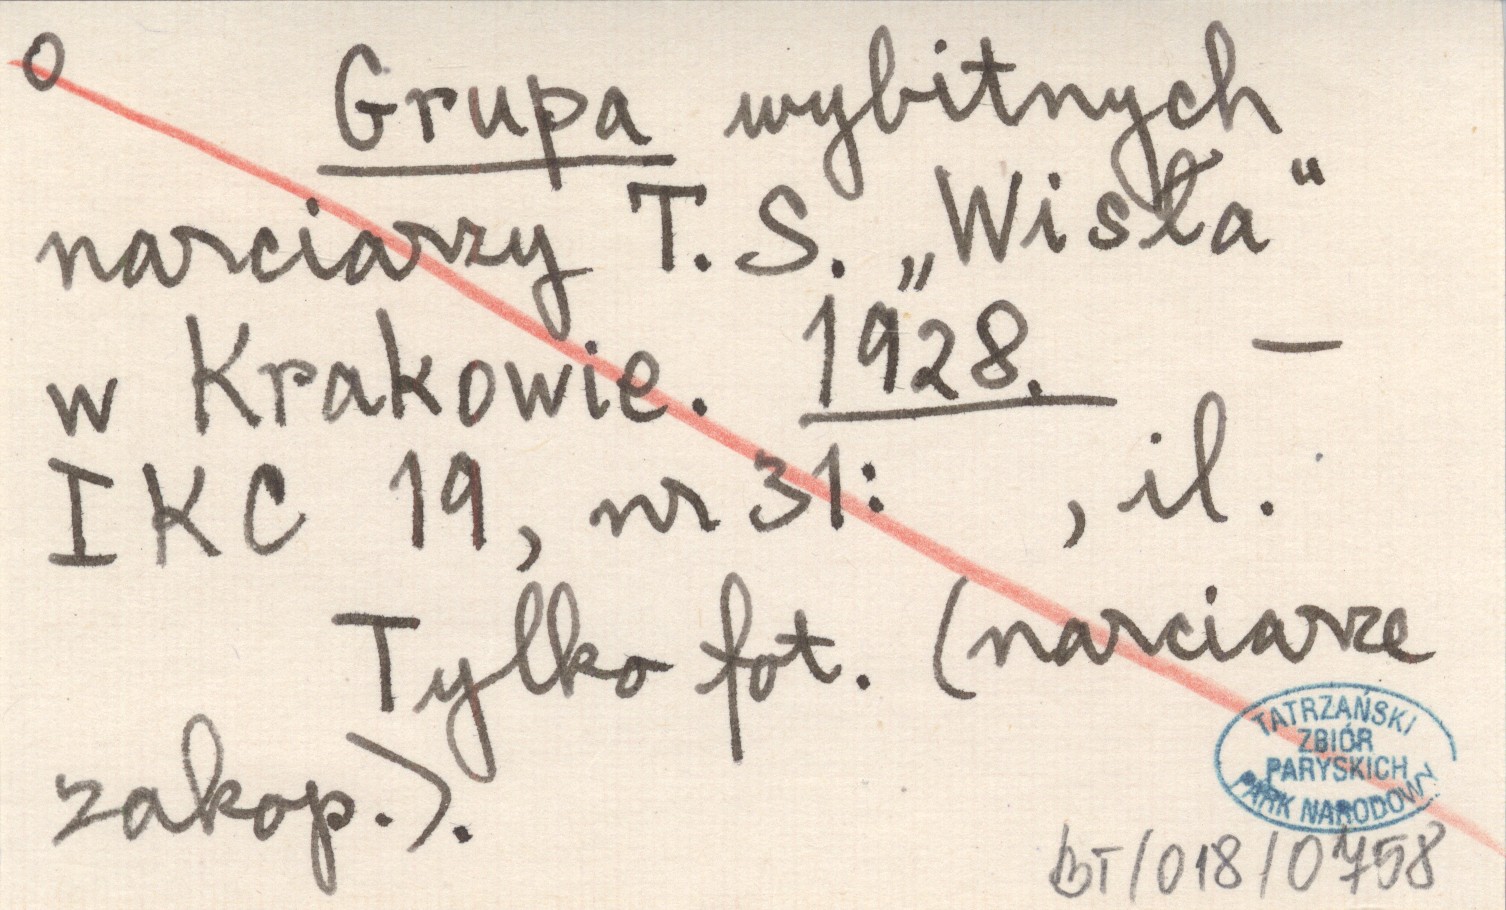 O Grupa wybitnych
narciarzy T.S. „Wisła“
w Krakowie. 1928. —
IKC 19, nr 31: , il.
Tylko fot. (narciarze
zakop.).
TATRZAŃSKI
ZBIÓR
PARYSKICH
PARK NARODOWY
BT/018/0758